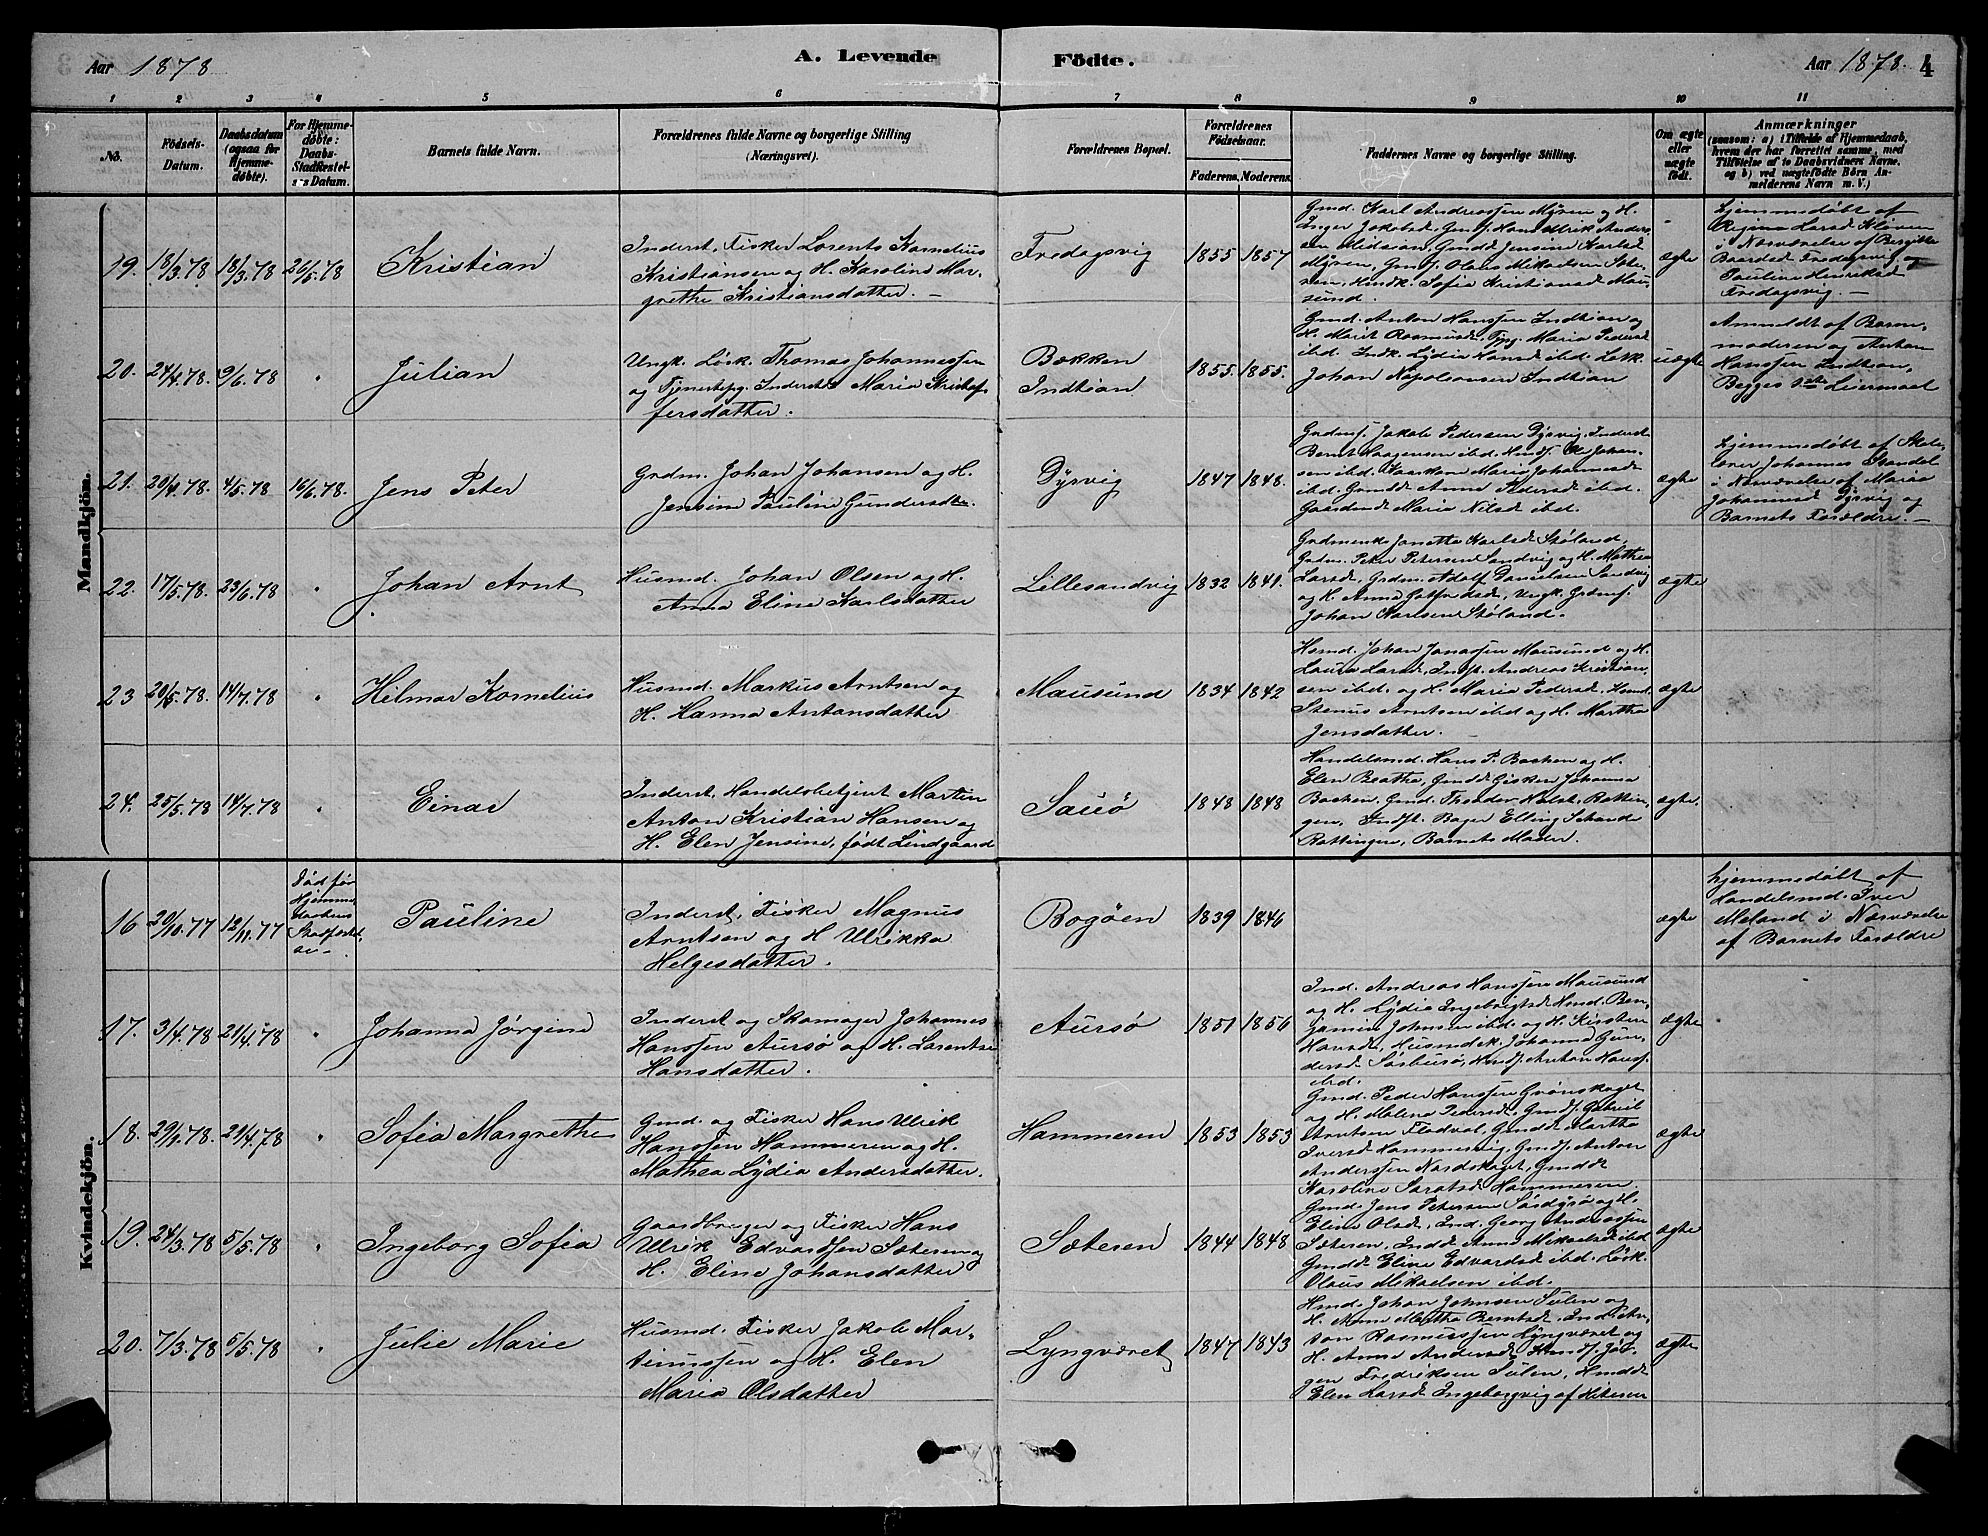 Aar 1878
A. Levende
Födte.
Aar 1878.
4
1 2 3 4 5 6 7 8 9 10 11
No.
Födsels-
Datum.
Daabsdatum
(ogsaa for
Hjemme-
døbte).
For Hjemme-
døbte:
Daabs-
Stadfæstel-
ses Datum.
Barnets fulde Navn.
Forældrenes fulde Navne og borgerlige Stilling
(Næringsvei).
Forældrenes Bopæl.
Forældrenes
Födselsaar.
Faderens. Moderens.
Faddernes Navne og borgerlige Stilling.
Om ægte
eller
uægte
født.
Anmærkninger
(saasom: a) i Tilfælde af Hjemmedaab,
hvem der har forrettet samme, med
Tilföielse af to Daabsvidners Navne,
og b) ved uægtefödte Börn An-
melderens Navn m. V.)
Mandkjön.
19. 18/3.78 18/3.78 26/5.78
Kristian
Inderst, Fisker Lorents Kornelius
Kristiansen og H. Karoline Mar-
grethe Kristiansdatter. —
Fredagsvig
1855 1857
Gmd. Karl Andreassen Myren og H.
Inger Jakobsd., Gmds. Hans Ulrik Anders-
sen Myren, Gmdd. Jensine Karlsd.
Myren, Gmds. Olaus Mikaelsen Sæte-
ren, Hmdk. Sofia Kristiansd. Mau-
sund.
ægte
Hjemmedøbt af
Regina Larsd. Kløven
i Nærværelse af Bergitte
Baardsd. Fredagsvig og
Pauline Henriksd.
Fredagsvig. —
20. 24/4.78. 9/6.78 "
Julian
Ungk. Løsk. Thomas Johannessen
og Tjenestepg. Inderst Maria Kristof-
fersdatter.
Bækken
Indtian
1855. 1855.
Gmd. Anton Hanssen Indtian og
H. Marit Rasmusd., Tpg. Maria Pedersd.
ibd. Indk. Lydia Hansd. ibd. Løsk.
Johan Napoleonsen Indtian
uægte
Anmeldt af Barne-
moderen og Anton
Hanssen Indtian,
Begges 1ste Leiermaal
21. 20/4.78. 4/5.78 16/6.78.
Jens Peter
Grdm. Johan Johansen og H.
Jensine Pauline Gundersdtr.
Dyrvig
1847 1848.
Grdms. Jakob Pedersen Dyrvig, Inderst
Bernt Haagensen ibd. Hmds. Ole Johan-
sen ibd. Maria Johannesd.
ibd. Grmdd. Anne Pedersd. ibd.
Maria Nilsd. ibd.
ægte
Hjemmedøbt af Skole-
lærer Johannes Sandel
i Nærværelse af Maria
Johannesd. Dyrvig og
Barnets Forældre. —
22. 17/5.78. 23/6.78 "
Johan Arnt
Husmd. Johan Olsen og H.
Anna Elina Karlsdatter
Lillesandvig
1832 1841.
Grdmenk. Jonetta Karlsd. Støland,
Grdm. Peter Petersen Sandvig og H. Mathea
Larsd., Grdm. Adolf Danielsen Sandvig
og H. Anna, Ungk. Grdms.
Johan Karlsen Støland.
ægte
23 20/5.78. 14/7.78 "
Hilmar Kornelius
Husmd. Markus Arntsen og
H. Hanna Antonsdatter
Mausund
1834 1842
Hsmd. Johan Jonassen Mausund og H.
Laura Larsd., Indst. Andreas Kristian-
sen ibd. og H. Maria Pedersd., Hsmd.
Stenus Arntsen ibd. og H. Martha
Jensdatter.
ægte
24. 25/5.78 14/7.78 "
Einar
Inderst, Handelsbetjent Martin
Anton Kristian Hansen og
H. Elen Jensine, født Lindgaard
Sauø
1848 1848
Handelsmd. Hans P. Bachen og H.
Elen Beathe, Gmdd. Gisken Johanna
Bachen, Gmd. Theodor Holst, Rottin-
gen, Indst. Bager Elling Schande
Rottingen, Barnets Moder.
ægte.
Kvindekjön.
16 20/10.77 12/11.77
Død før
Hjemme-
daabens
Stadfæstel-
se.
Pauline
Inderst, Fisker Magnus
Arntsen og H. Ulrikka
Helgesdatter.
Bogøen
1839 1846
ægte
Hjemmedøbt af
Handelsmd. Iver
Meland i Nærværelse
af Barnets Forældre
17. 3/4.78 21/4.78 "
Johanna Jørgine
Inderst og Skomager Johannes
Hanssen Aursø og H. Lorentse
Hansdatter.
Aursø
1851 1856
Ind. Andreas Hanssen Mausund
og H. Lydia Ingebrigtsd. Hmd. Ben-
jamin Johnsen ibd. og H. Kirstine
Hansd., Husmdek. Johanna Gun-
dersd. Sørbursø, Hmds. Anton Hanss.
ibd.
ægte
18. 29/1.78. 21/4.78 "
Sofia Margrethe
Gmd. og Fisker Hans Ulrik
Hanssen Hammeren og H.
Mathea Lydia Andersdatter.
Hammeren
1853 1853
Gmd. Peder Hanssen Grønskaget
og H. Malena Pedersd., Gmds. Gabriel
Arntsen Fladval, Gmdd. Martha
Iversd. Hammervig, Gmds. Anton
Anderssen Nordskaget, Gmdd.
Karoline Hammeren
ægte
19. 24/3.78 5/5.78 "
Ingeborg Sofia
Gaardbruger og Fisker Hans
Ulrik Edvardsen Sæteren og
H. Eline Johansdatter
Sæteren
1844 1848
Gmd. Jens Petersen Sørdyrø og H.
Eline Olsd., Ind. Georg Andreassen
Sæteren, Indd. Anne Mikaelsd. ibd.
Gmdd. Eline Edvardsd. ibd. Løsk.
Olaus Mikaelsen ibd.
ægte
20. 7/3.78 5/5.78 "
Julie Marie
Husmd. Fisker Jakob Mar-
tinussen og H. Elen
Maria Olsdatter
Lyngværet
1847 1843
Hmd. Johan Johnsen Sulen og
H. Anne Martha Berntsd., Ind. An-
ton Rasmussen Lyngværet og
H. Anne Andersd., Hmds. Jør-
gen Fredriksen Sulen, Hmdd.
Elen Larsd. Ingeborgvig af Hiteren
ægte